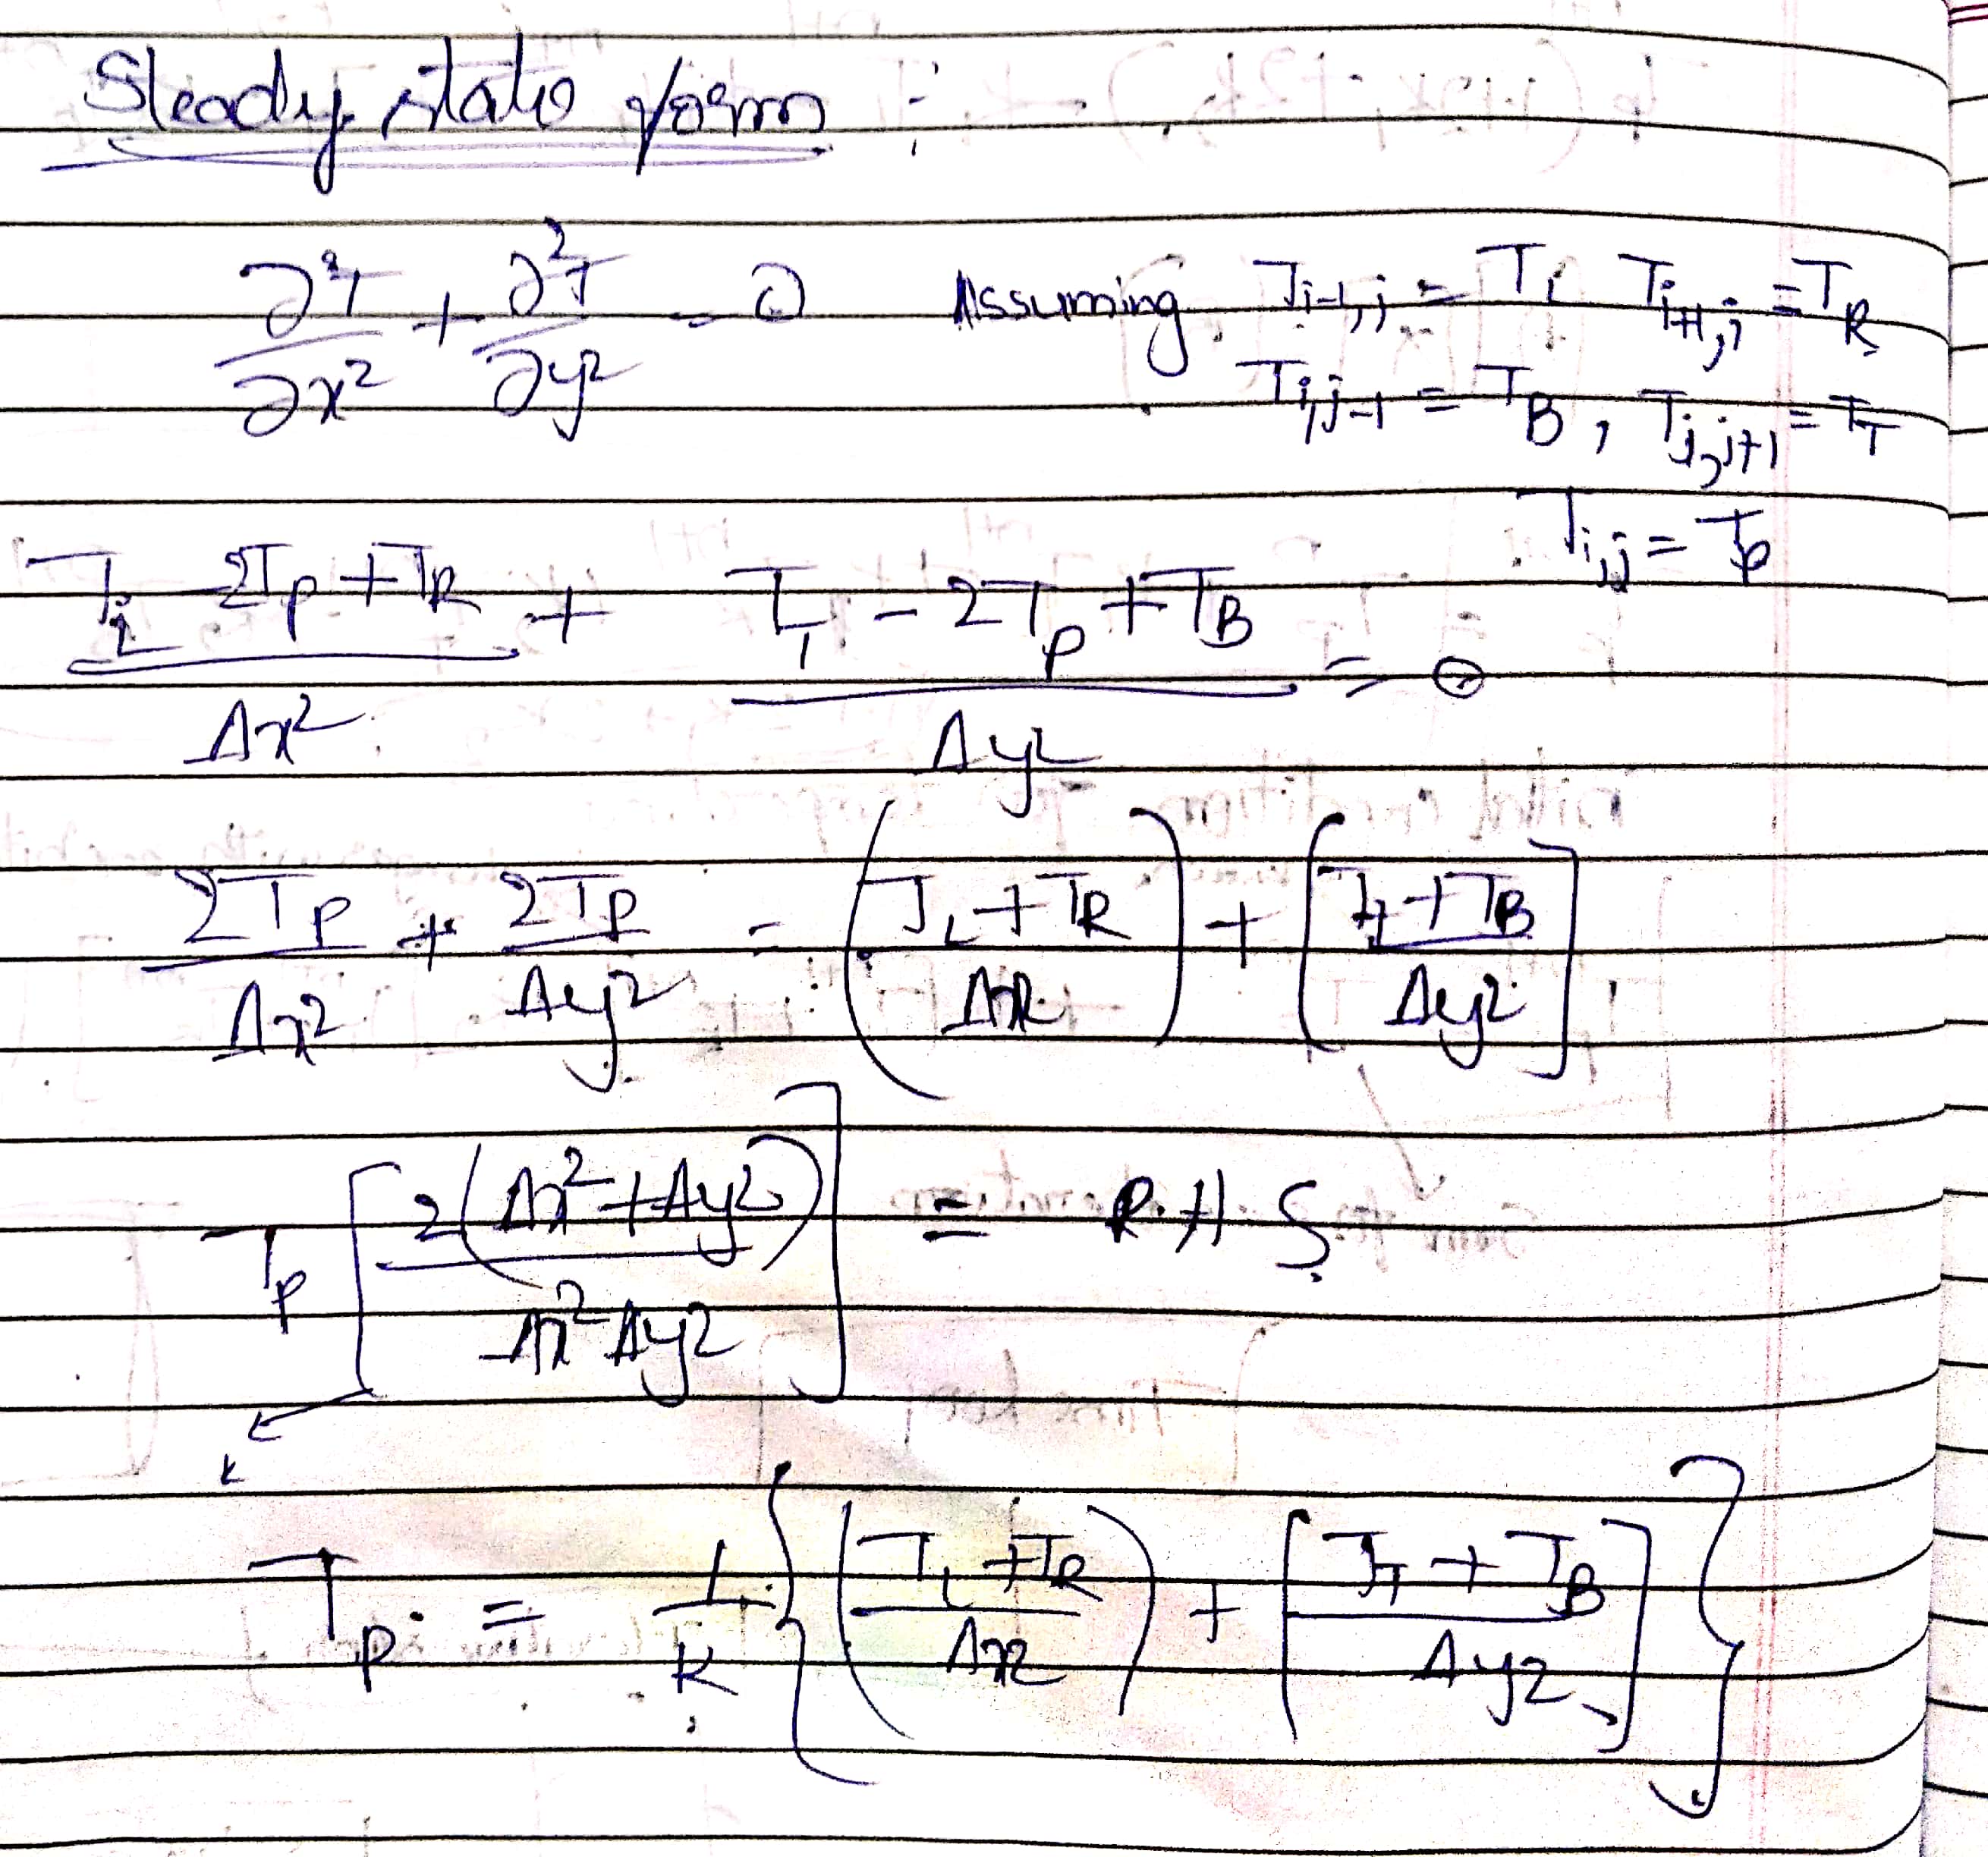 Steady state form :
∂²T/∂x² + ∂²T/∂y² = 0 Assuming T_{i-1,j} = T_L T_{i+1,j} = T_R
T_{i,j-1} = T_B , T_{i,j+1} = T_T
T_{i,j} = T_P
(T_L - 2T_P + T_R)/Δx² + (T_T - 2T_P + T_B)/Δy² = 0
2T_P/Δx² + 2T_P/Δy² = ((T_L + T_R)/Δx²) + [(T_T + T_B)/Δy²]
T_P [2(Δx² + Δy²)/Δx² Δy²] = R.H.S
k
T_P = 1/k {((T_L + T_R)/Δx²) + [(T_T + T_B)/Δy²]}